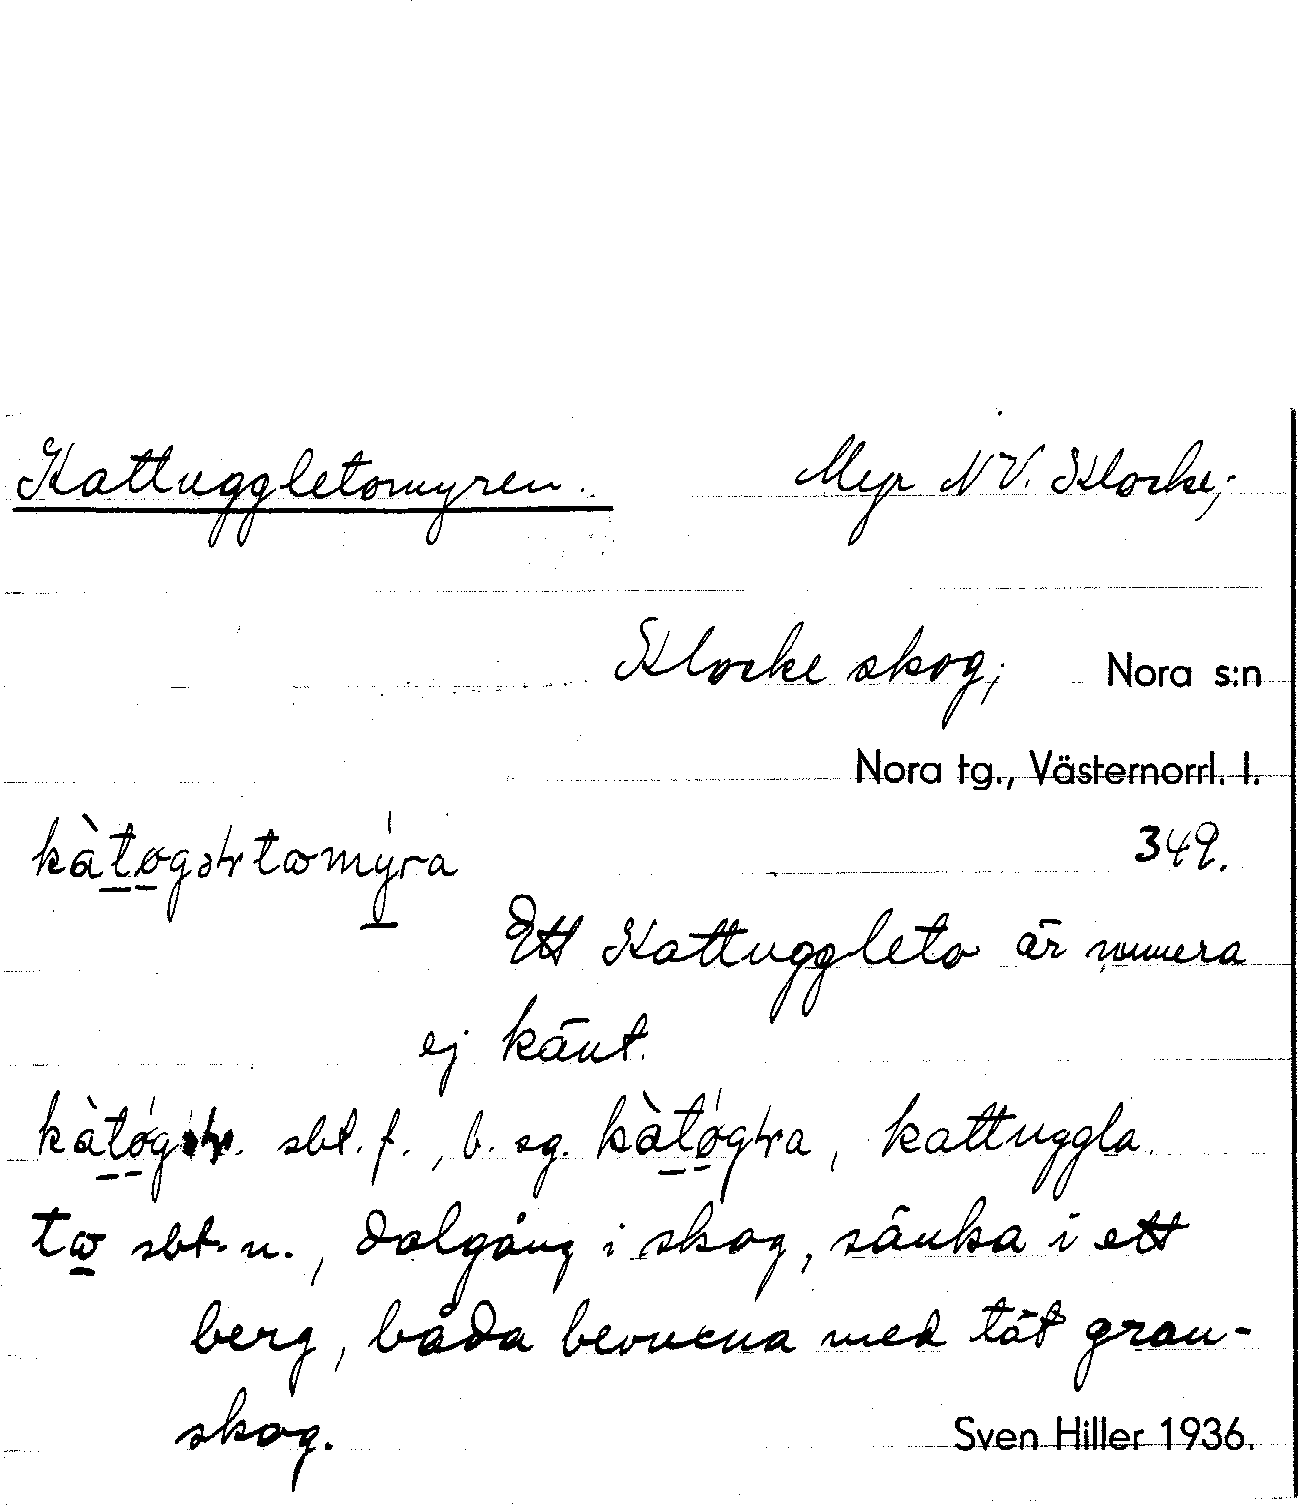 Kattuggletomyren. Myr NV. Klocke;
Klocke skog; Nora s:n
Nora tg., Västernorrl. l.
349.
Ett Kattuggleto är numera
ej känt.
sbt. f., b. sg. , kattuggla.
sbt. n., dalgång i skog, sänka i ett
berg, båda bevuxna med tät gran-
skog. Sven Hiller 1936.